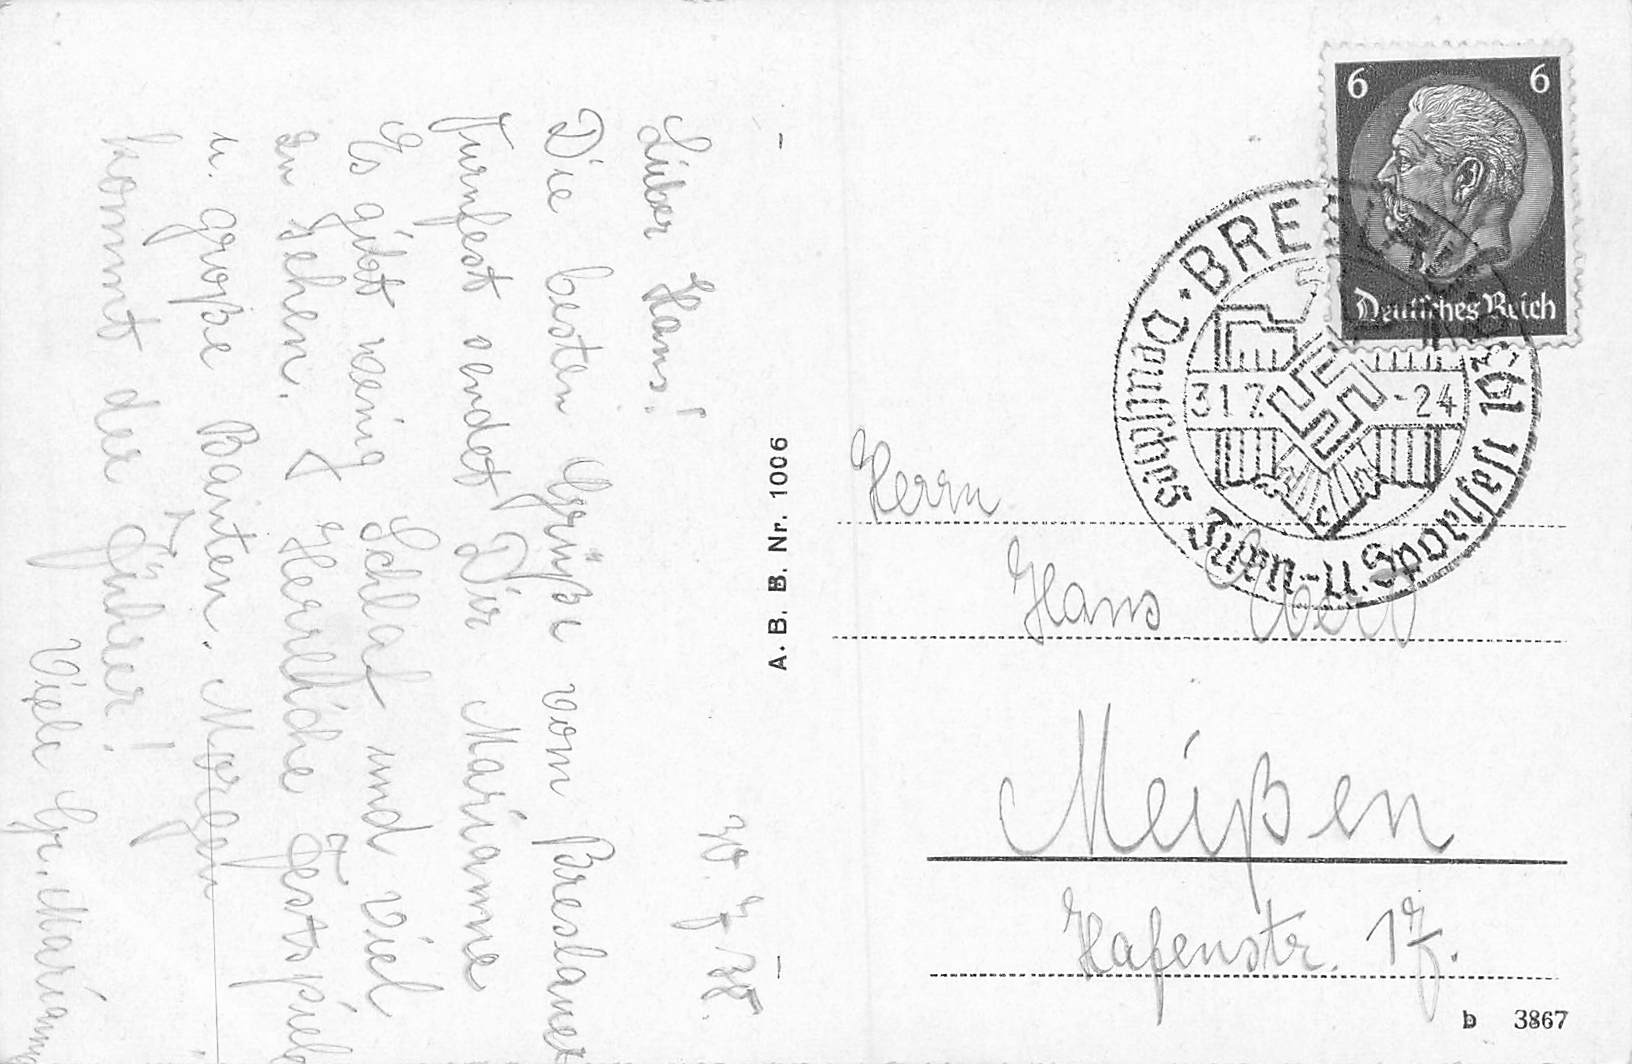 30. 7. 38.
Lieber Hans!
Die besten Grüße vom Breslauer
Turnfest sendet Dir Marianne
Es gibt wenig Schlaf und viel
zu sehen. Herrliche Festspiele
u. große Bauten. Morgen
kommt der Führer!
Viele Gr. Marianne
A. B. B. Nr. 1006
6 6
Deutsches Reich
BRESLAU
317. -24
Deutsches Turn- u. Sportfest 1938
Herrn
Hans
Meißen
Hafenstr. 17.
b 3867